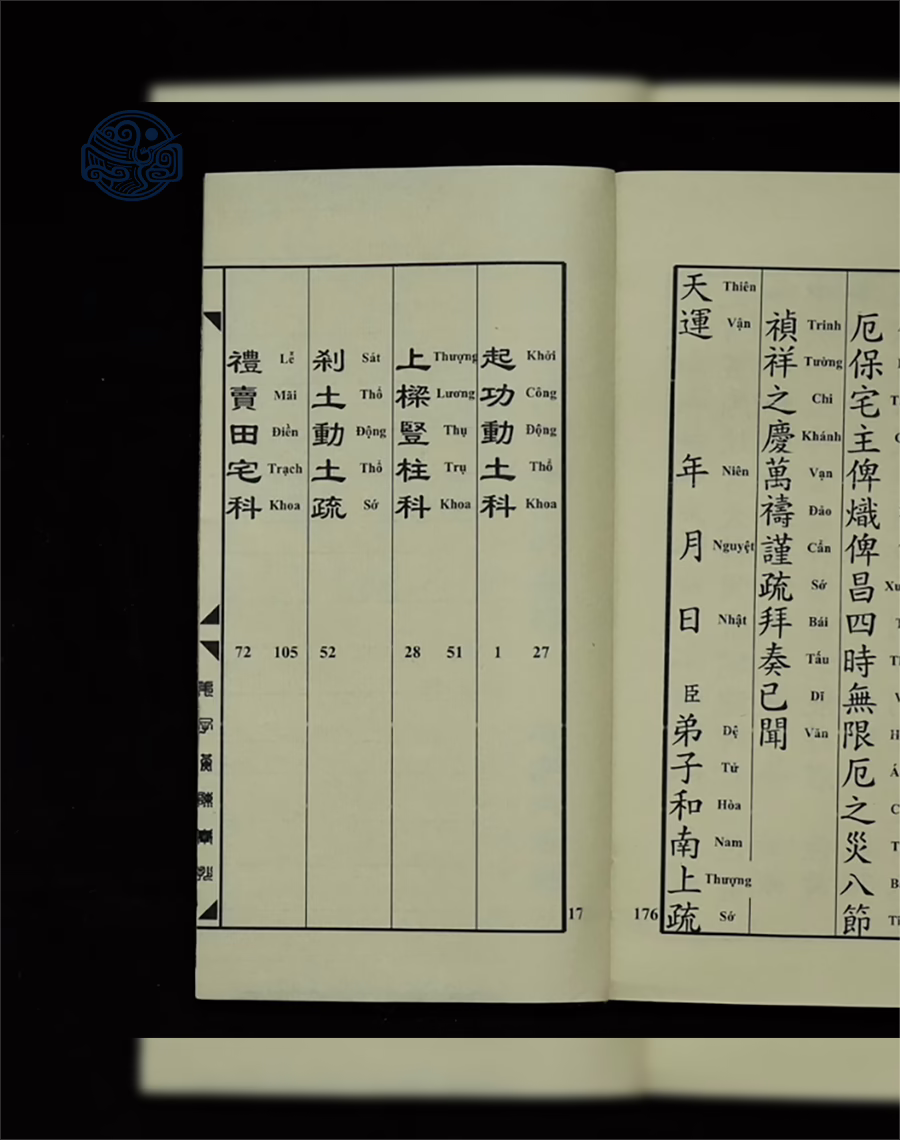 厄保宅主俾熾俾昌四時無限厄之災八節
Trinh Tường Chi Khánh Vạn Đảo Cẩn Sớ Bái Tấu Dĩ Văn
禎祥之慶萬禱謹疏拜奏已聞
Thiên Vận Niên Nguyệt Nhật Đệ Tử Hòa Nam Thượng Sớ
天運 年 月 日 臣 弟子和南上疏
176
Khởi Công Động Thổ Khoa 27
起功動土科 1
Thượng Lương Thụ Trụ Khoa 51
上樑豎柱科 28
Sát Thổ Động Thổ Sớ
剎土動土疏 52
Lễ Mãi Điền Trạch Khoa 105
禮賣田宅科 72
17